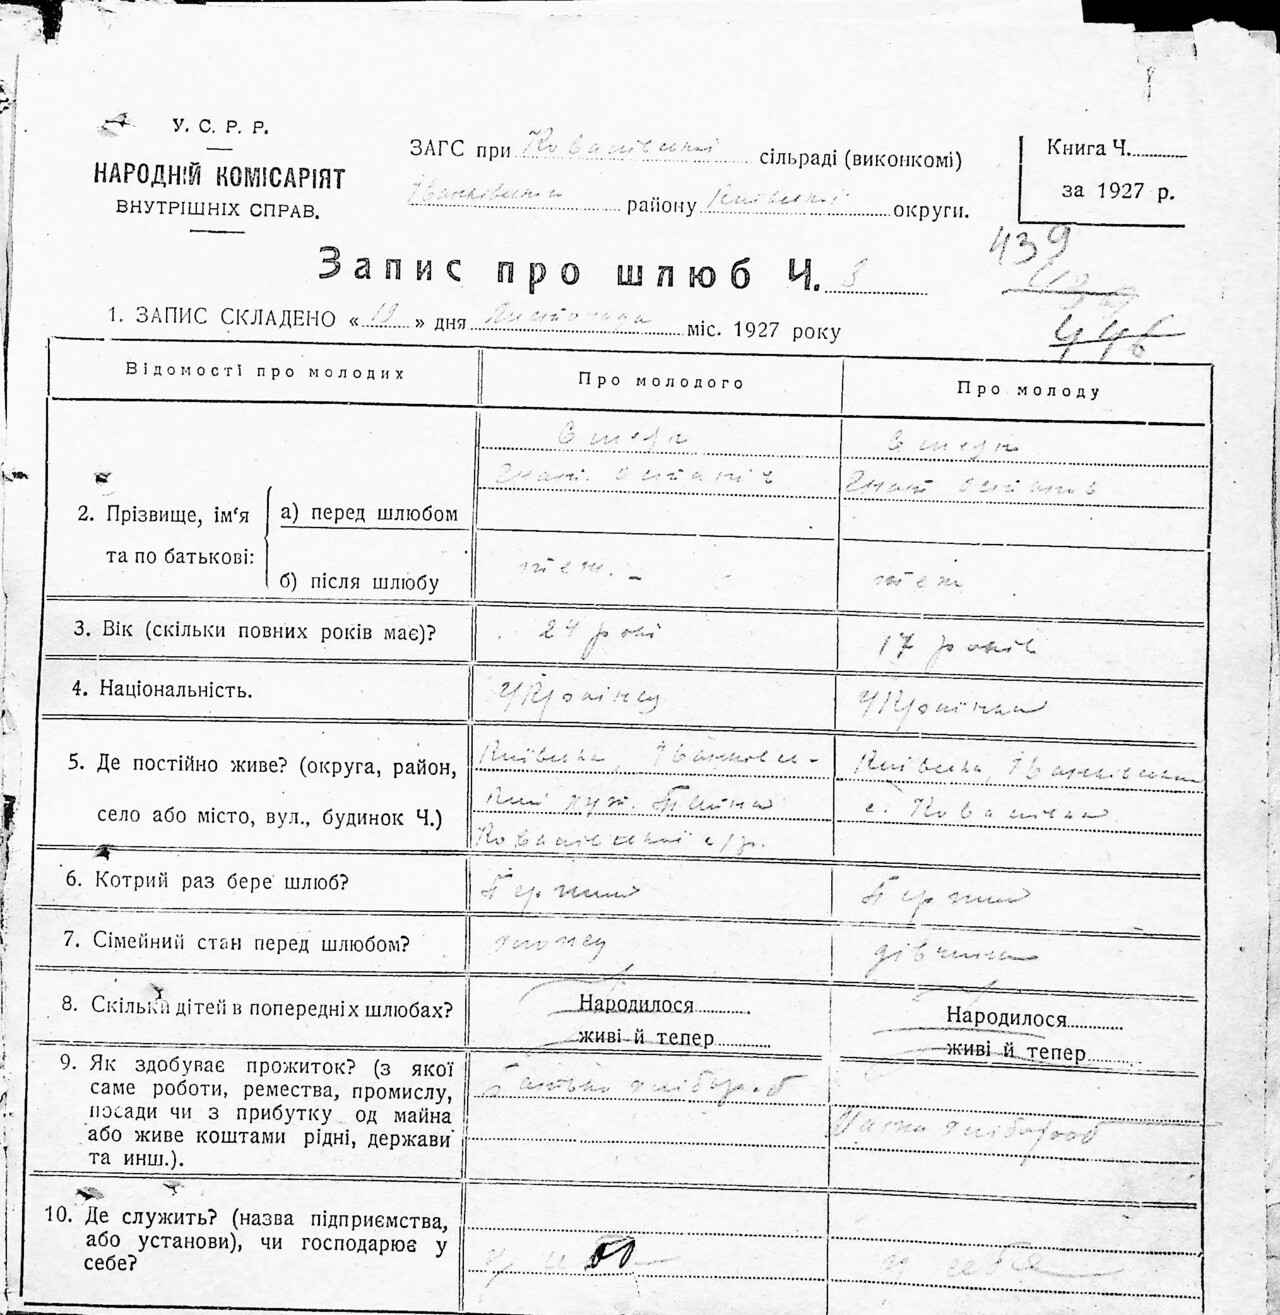 У. С. Р. Р.
НАРОДНІЙ КОМІСАРІЯТ
ВНУТРІШНІХ СПРАВ.
ЗАГС при сільраді (виконкомі)
району округи.
Книга Ч.
за 1927 р.
439
446
Запис про шлюб Ч. 8
1. ЗАПИС СКЛАДЕНО « 19 » дня Листопада міс. 1927 року
Відомості про молодих
Про молодого
Про молоду
2. Прізвище, ім'я
та по батькові:
а) перед шлюбом
б) після шлюбу
теж. -
теж
3. Вік (скільки повних років має)?
24 рокі
17 років
4. Національність.
Українец
Українка
5. Де постійно живе? (округа, район,
село або місто, вул., будинок Ч.)
Київська,
Київська, Іванківськ
с.
6. Котрий раз бере шлюб?
Перший
Перший
7. Сімейний стан перед шлюбом?
хлопец
дівчина
8. Скільки дітей в попередніх шлюбах?
Народилося
живі й тепер
Народилося
живі й тепер
9. Як здобуває прожиток? (з якої
саме роботи, ремества, промислу,
посади чи з прибутку од майна
або живе коштами рідні, держави
та инш.).
хлібороб
хлібороб
10. Де служить? (назва підприємства,
або установи), чи господарює у
себе?
у себе